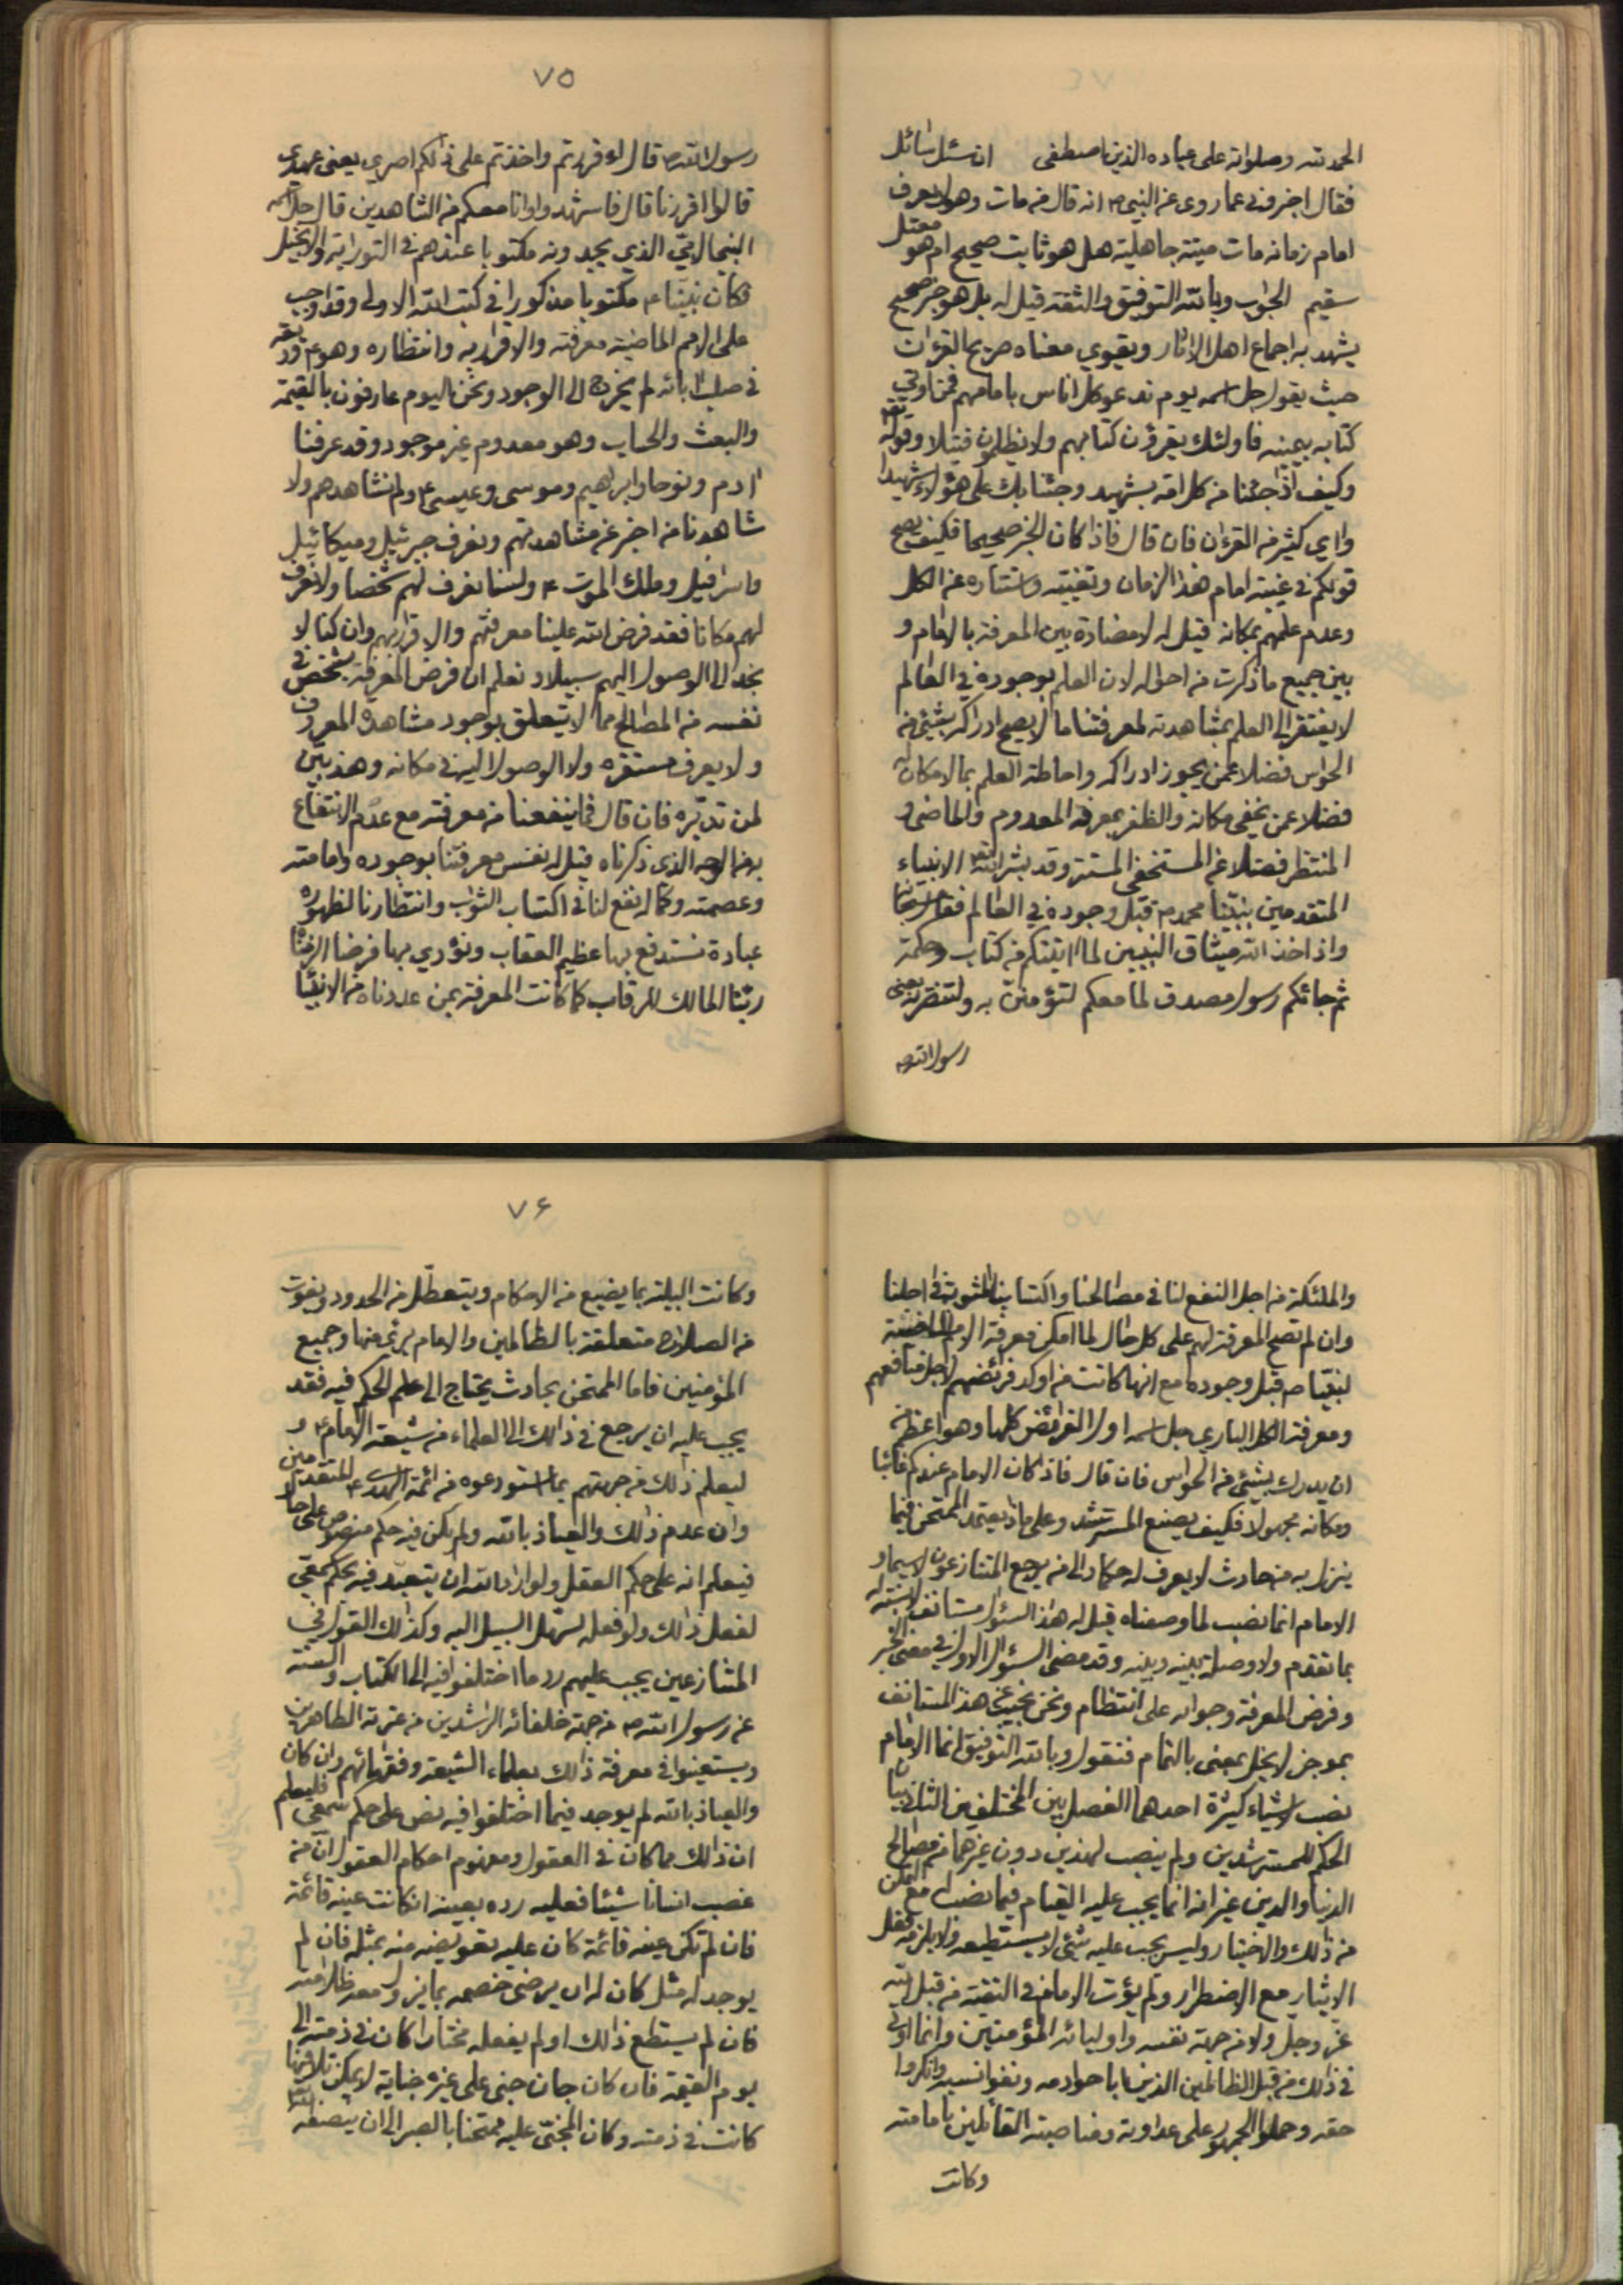 الحمد لله وصلواته على عباده الذين اصطفى ان سئل سائل
فقال اخبرونى عما روى عن النبى ص انه قال من مات وهو لا يعرف
امام زمانه مات ميتة جاهلية هل هو ثابت صحيح ام هو معتل
سقيم الجواب وبالله التوفيق والثقة قيل له بل هو خبر صحيح
يشهد به اجماع اهل الاثار ويقوي معناه صريح القرءان
حيث يقول جل اسمه يوم ندعو كل اناس بامامهم فمن اوتي
كتابه بيمينه فاولئك يقرؤن كتابهم ولا يظلمون فتيلا وقوله تعالى
وكيف اذا جئنا من كل امة بشهيد وجئنا بك على هؤلاء شهيدا
واي كثير من القرءان فان قال فاذا كان الخبر صحيحا فكيف يصح
قولكم في غيبة امام هذا الزمان وتغيبه واستتاره عن الكل
وعدم علمهم بمكانه قيل له لا مضادة بين المعرفة بالامام و
بين جميع ما ذكرت من احواله لان العلم بوجوده في العالم
لا يفتقر الى العلم بمشاهدته لمعرفتنا ما لا يصح ادراكه بشيئ من
الحواس فضلا عمن يجوز ادراكه واحاطة العلم بما لا مكان له
فضلا عمن يخفى مكانه والظفر بمعرفة المعدوم والماضى و
المنتظر فضلا عن المستخفى المستتر وقد بشر الله تعالى الانبياء
المتقدمين بنبينا محمد ص قبل وجوده في العالم فقال سبحانه
واذ اخذ الله ميثاق النبيين لما اتيتكم من كتاب وحكمة
ثم جائكم رسول مصدق لما معكم لتؤمنن به ولتنصرنه يعنى
رسول الله ص
٧٥
رسول الله ص قال ءاقررتم واخذتم على ذلكم اصري يعنى عهدي
قالوا اقررنا قال فاشهدوا وانا معكم من الشاهدين قال جل اسمه
النبي الامّيّ الذي يجدونه مكتوبا عندهم في التوراية والانجيل
فكان نبينا ص مكتوبا مذكورا في كتب الله الاولى وقد اوجب
على الامم الماضية معرفته والاقرار به وانتظاره وهو ع وديعة
في صلب ابائه لم يخرج الى الوجود ونحن اليوم عارفون بالقيمة
والبعث والحساب وهو معدوم غير موجود وقد عرفنا
ادم ونوحا وابراهيم وموسى وعيسى ع ولم نشاهدهم ولا
شاهدنا من اخبر عن مشاهدتهم ونعرف جبرئيل وميكائيل
واسرافيل وملك الموت ع ولسنا نعرف لهم شخصا ولا نعرف
لهم مكانا فقد فرض الله علينا معرفتهم والاقرار بهم وان كنا لا
نجد الى الوصول اليهم سبيلا و نعلم ان فرض المعرفة بشخص في
نفسه من المصالح مما لا يتعلق بوجود مشاهدة المعروف
ولا يعرف مستقره ولا الوصول اليه في مكانه وهذا بيّن
لمن تدبّره فان قال فما ينفعنا من معرفته مع عدم الانتفاع
به من الوجه الذى ذكرناه قيل له نفس معرفتنا بوجوده وامامته
وعصمته وكماله نفع لنا في اكتساب الثواب وانتظارنا لظهوره
عبادة نستدفع بها عظيم العقاب ونؤدي بها فرضا الزمناه
ربّنا المالك للرقاب كما كانت المعرفة بمن عددناه من الانبياء
والملئكة من اجل النفع لنا في مصالحنا واكتسابنا المثوبة في اجلنا
وان لم تصح المعرفة لهم على كل حال كما امكن معرفة الامم الماضية
لنبيّنا ص قبل وجوده مع انها كانت من اوكد فرائضهم لاجل منافعهم
ومعرفة الكل الباري جل اسمه اول الفرائض كلها وهو اعظم من
ان يدرك بشيئ من الحواس فان قال فاذا كان الامام عندكم غائبا
ومكانه مجهولا فكيف يصنع المسترشد وعلى ماذا يعتمد الممتحن فيما
ينزل به من حادث لا يعرف له حكما والى من يرجع المتنازعون لا سيما و
الامام انما نصب لما وصفناه قيل له هذا السئول مستانف لا نسبة له
بما تقدم ولا وصلة بينه وبينه وقد مضى السئول الاول في معنى الخبر
وفرض المعرفة وجوابه على انتظام ونحن نجيب عن هذا المستانف
بموجز لا يخل بمعنى بالتمام فنقول وبالله التوفيق انما الامام
نصب لاشياء كثيرة احدها الفصل بين المختلفين الثانى بيان
الحكم للمسترشدين ولم ينصب لهذين دون غيرهما من مصالح
الدنيا والدين غير انه انما يجب عليه القيام فيما نصب له مع التمكن
من ذلك والاختيار وليس يجب عليه شئ لا يستطيعه ولا يلزمه فعل
الايثار مع الاضطرار ولم يؤت الامام في التقية من قبل الله
عز وجل ولا من جهة نفسه واوليائه المؤمنين وانما اوتى
في ذلك من قبل الظالمين الذين اباحوا دمه ونفوا نسبه وانكروا
حقه وحملوا الجمهور على عداوته ومناصبة القائلين بامامته
وكانت
٧۶
وكانت البلية بما يضيع من الاحكام ويتعطّل من الحدود ويفوت
من الصلاح متعلقة بالظالمين والامام برئ منها وجميع
المؤمنين فاما الممتحن بحادث يحتاج الى علم الحكم فيه فقد
يجب عليه ان يرجع في ذالك الى العلماء من شيعة الامام ع و
ليعلم ذلك من جهتهم بما استودعوه من ائمة الهدى ع المتقدمين
وان عدم ذلك والعياذ بالله ولم يكن فيه حكم منصوص على حال
فيعلم انه على حكم العقل ولو اراد الله ان يتعبّد فيه بحكم سمعي
لفعل ذالك ولو فعله لسهّل السبيل اليه وكذلك القول في
المتنازعين يجب عليهم رد ما اختلفوا فيه الى الكتاب والسنة
عن رسول الله ص من جهة خلفائه الراشدين من عترته الطاهرين
ويستعينوا في معرفة ذالك بعلماء الشيعة وفقهائهم وان كان
والعياذ بالله لم يوجد فيما اختلفوا فيه نص على حكم سمعي فليعلم
ان ذالك مما كان في العقول ومفهوم احكام العقول ان من
غصب انسانا شيئا فعليه رده بعينه ان كانت عينه قائمة
فان لم تكن عينه قائمة كان عليه تعويضه منه بمثله فان لم
يوجد له مثل كان له ان يرضى خصمه بما يزول معه ظلامته
فان لم يستطع ذالك او لم يفعله مختارا كان في ذمته الى
يوم القيمة فان كان جان جنى على غيره جناية لا يمكن تلافيها
كانت في ذمته وكان المجنيّ عليه ممتحنا بالصبر الى ان ينصفه الله